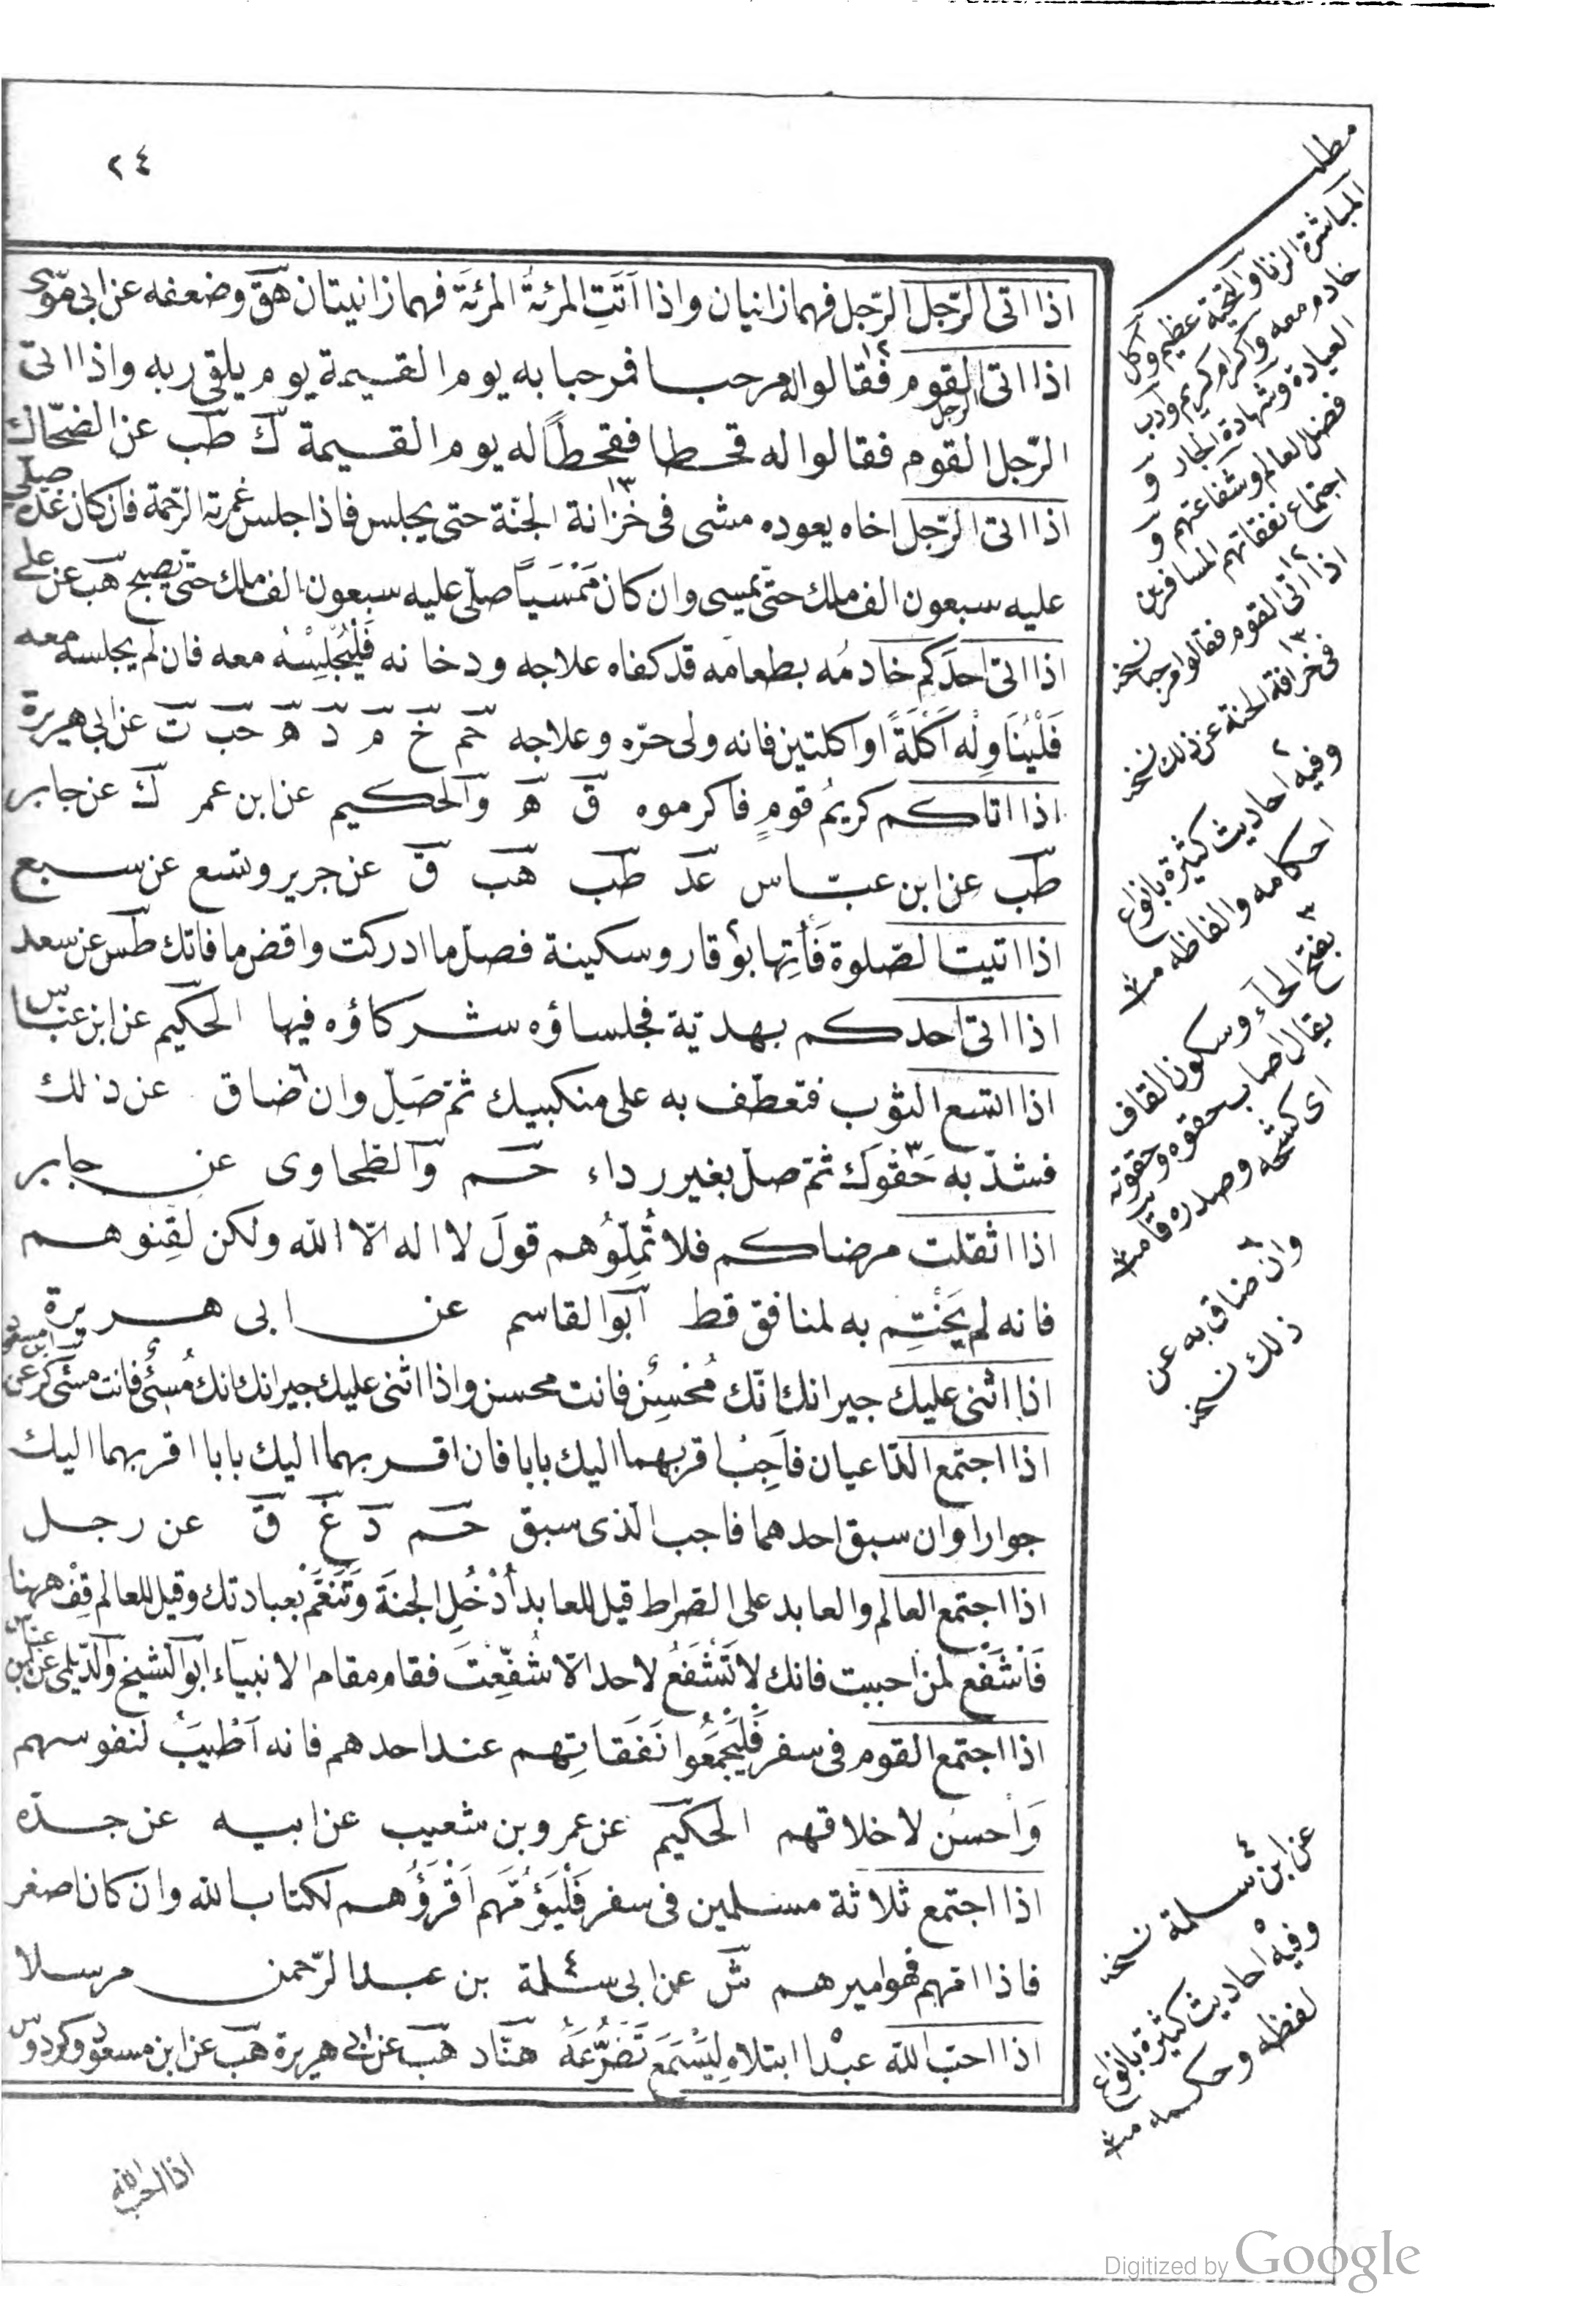 ٢٤
اذا اتى الرّجل الرّجل فهما زانيان واذا اَتَتِ المرئةُ المرئةَ فهما زانيتان هق وضعفه عن ابى موسى
اذا اتى الرجل القوم فقالوا له مرحبا فمرحبا به يوم القيمة يوم يلقى ربه واذا اتى
الرّجل القوم فقالوا له قحطا فقحطاً له يوم القيمة ك طب عن الضحّاك
اذا اتى الرّجل اخاه يعوده مشى فى خزانة الجنّة حتى يجلس فاذا جلس غمرته الرّحمة فان كان غدوة صلّى
عليه سبعون الف ملك حتّى يمسى وان كان مَمْسَياً صلّى عليه سبعون الف ملك حتّى يصبح هب عن على
اذا اتى احدَكم خادمُه بطعامه قد كفاه علاجه ودخانه فَلْيُجْلِسْهُ معه فان لم يجلسه معه
فَلْيُنَاوِلْه اَكْلَةً او اكلتين فانه ولى حرّه وعلاجه حم خ م د ه حب ت عن ابى هريرة
اذا اتاكم كريمُ قومٍ فاكرموه ق ه والحكيم عن ابن عمر ك عن جابر
طب عن ابن عبّاس عد طب هب ق عن جرير وتسع عن سبع
اذا اتيت الصّلوة فَأْتِها بوَقار وسكينة فصلّ ما ادركت واقض ما فاتك طس عن سعد
اذا اتى احدكم بهديّة فجلساؤه شركاؤه فيها الحكيم عن ابن عبّاس
اذا اتسع الثوب فتعطّف به على منكبيك ثمّ صَلِّ وان ضاق عن ذلك
فشدّ به حَقْوَك ثمّ صلّ بغير رداء حم والطحاوى عن جابر
اذا اثقلت مرضاكم فلا تُمِلُّوهم قولَ لا اله الّا الله ولكن لَقِّنوهم
فانه لم يَخْتِم به لمنافق قط ابو القاسم عن ابى هريرة
اذا اثنى عليك جيرانك انّك مُحْسِنٌ فانت محسن واذا اثنى عليك جيرانك انك مُسِئٌ فانت مسئ كر عن ابن مسعود
اذا اجتمع الدّاعيان فاَجِبْ اقربهما اليك بابا فان اقربهما اليك بابا اقربهما اليك
جوارا وان سبق احدهما فاجب الّذى سبق حم د غ ق عن رجل
اذا اجتمع العالم والعابد على الصّراط قيل للعابد اُدْخُلِ الجنّة وتَنَعَّمْ بعبادتك وقيل للعالم قِفْ ههنا
فَاشْفَعْ لمن احببت فانك لا تَشْفَعُ لاحد الّا شُفِّعْتَ فقام مقام الانبيآء ابو الشيخ والدّيلمى عن ابن عباس
اذا اجتمع القوم فى سفر فَلْيَجْمَعُوا نَفَقَاتِهم عند احدهم فانه اَطْيَبُ لنفوسهم
وَاحسَن لاخلاقهم الحكيم عن عمرو بن شعيب عن ابيه عن جدّه
اذا اجتمع ثلاثة مسلمين فى سفر فَلْيَؤُمَّهم اَقْرَؤُهم لكتاب الله وان كان اصغر
فاذا امّهم فهو اميرهم ش عن ابى سلمة بن عبد الرّحمن مرسلا
اذا احبّ الله عبْدا ابتلاه لِيَسْمَعَ تَضَرُّعَهُ هنّاد هب عن ابى هريرة هب عن ابن مسعود وكردوس
اذا احب الله
مطلب
المباشرة الزنا والتحية عظيم وكل
خادم معه واكرام كريم وادب
العيادة وشهادة الجار و
فضل العالم وشفاعتهم و
اجتماع نفقاتهم المسافرين
١٢
اذا اتى القوم فقالوا مرحبا نسخه
١٣
فى خرافة الجنة عن ذلك نسخه
٢
وفيه احاديث كثيرة بانواع
احكامه والفاظه منه
٣
بفتح الحآء وسكون القاف
يقال اصاب حقوه وحقوته
اى كشحه وصدره قامت
٦
وان ضاق به عن
ذلك نسخه
٤
عن ابن سلمة نسخه
٥
وفيه احاديث كثيرة بانواع
لفظه وحكمه منه
Digitized by Google